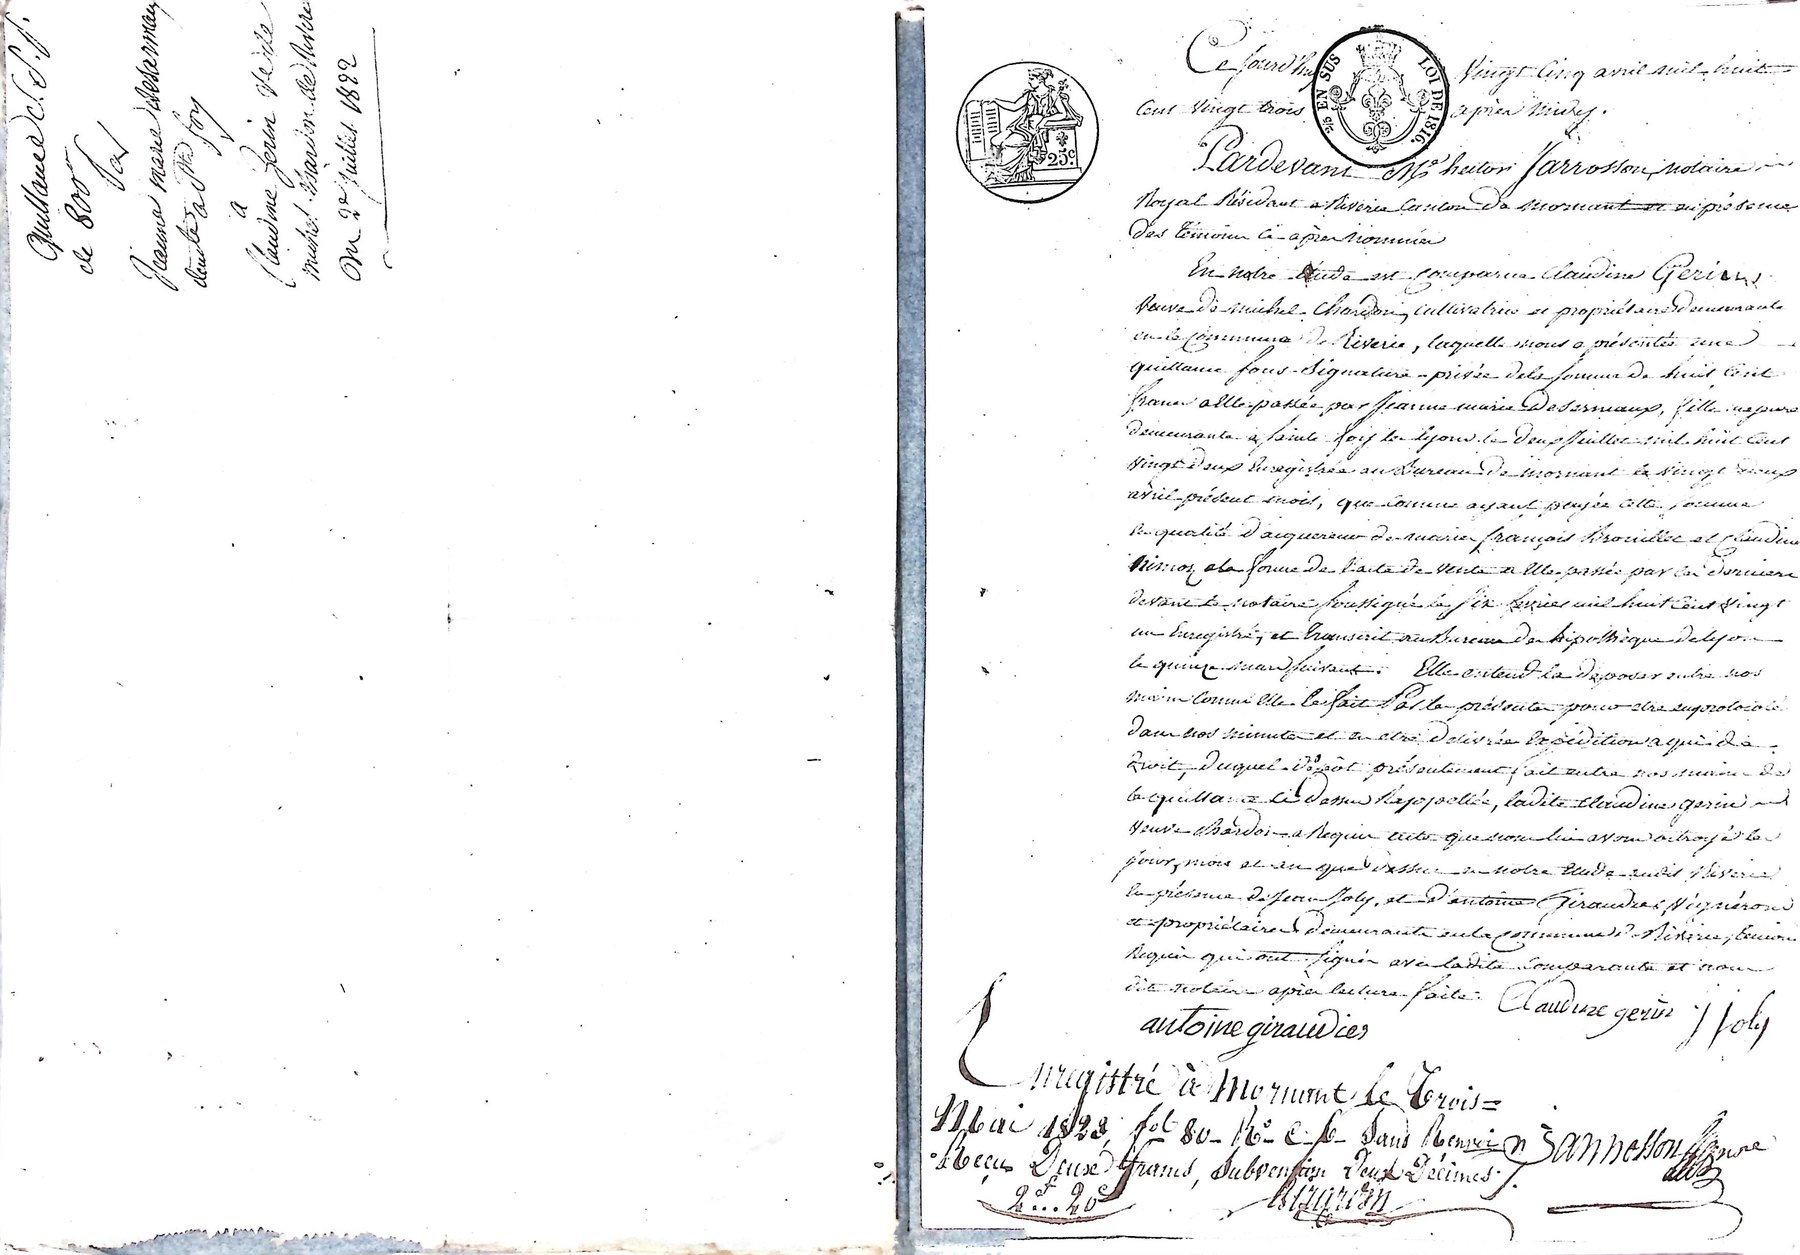 Quittance s.s.p.
de 800
Par
Jeanne marie desermaux
deute a Ste foy
a
Claudine Gerin veuve
michel Chardon de Riverie
Du 2e juillet 1822
25 EN SUS LOI DE 1816.
25c
Ce jourd'hui vingt cinq avril mil huit
cent vingt trois après midy.
Pardevant Me hector Jarrosson, notaire
Royal Résidant a Riverie Canton de mornant et en présence
des témoins ci-après nommés
En notre étude est comparue Claudine Gerin,
veuve de michel Chardon, cultivatrice et propriétaire demeurante
en la commune de Riverie, laquelle nous a présentée une
quittance sous signature privée de la somme de huit cent
francs a elle passée par Jeanne marie Desermaux, fille majeure
demeurante a sainte foy les lyon le deux Juillet mil huit cent
vingt deux Enregistrée au Bureau de mornant le vingt deux
avril présent mois, que comme ayant payée cette somme
en qualité d'acquereur de marie françois Brouillet et Claudine
Rimoz a la forme de l'acte de vente a elle passée par ces derniers
devant le notaire soussigné le six fevrier mil huit cent vingt
un Enregistré, et transcrit au Bureau des hipothèques de lyon
le quinze mars suivant. Elle entend la déposer entre nos
mains comme elle le fait Par la présente pour etre enprotocolé
dans nos minutes et en etre délivrée expédition a qui de
droit, duquel dépôt présentement fait entre nos mains de
la quittance ci dessus Rappellée, ladite Claudine gerin
veuve Chardon a Requis acte que nous lui avons octroyé les
jour, mois et an que dessus en notre Etude audit Riverie
en présence de Jean Joly, et d'antoine Giraudier, Vignerons
et propriétaires demeurants en la commune de Riverie, témoins
Requis qui ont signés avec ladite comparante et nous
dit notaire après lecture faite.
Claudine gerin J Joly
antoine giraudier
Enregistré à Mornant le Trois
Mai 1823, fol 80 Ro C. 6 Sans Renvoi
Jarrosson
Reçu Deux francs, Subvention Deux Décimes.
2f... 20c